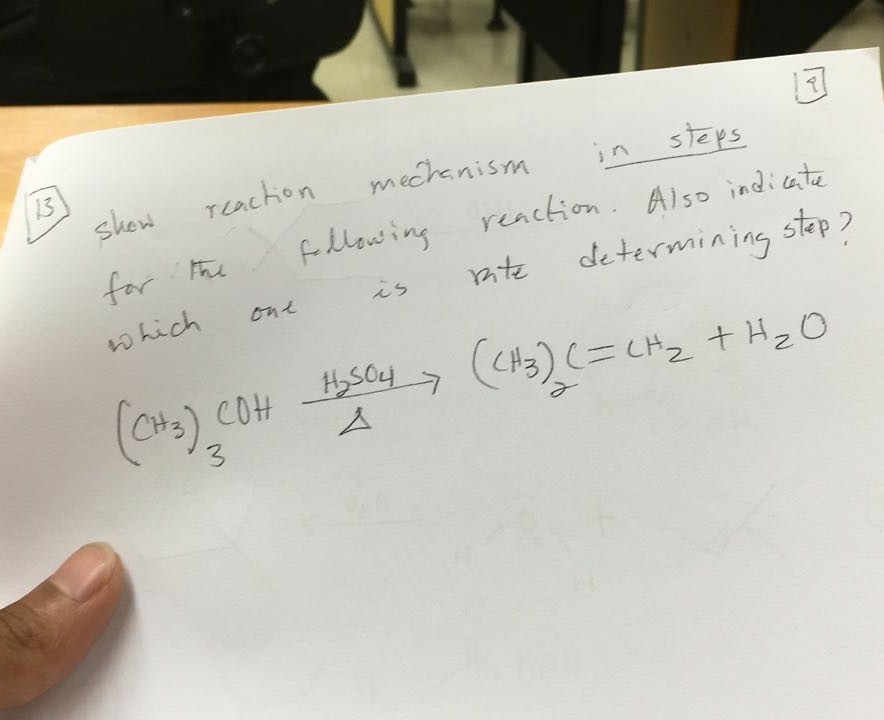 9
13 show reaction mechanism in steps
for the following reaction. Also indicate
which one is rate determining step?
(CH3)3 COH H2SO4 Δ → (CH3)2 C=CH2 + H2O